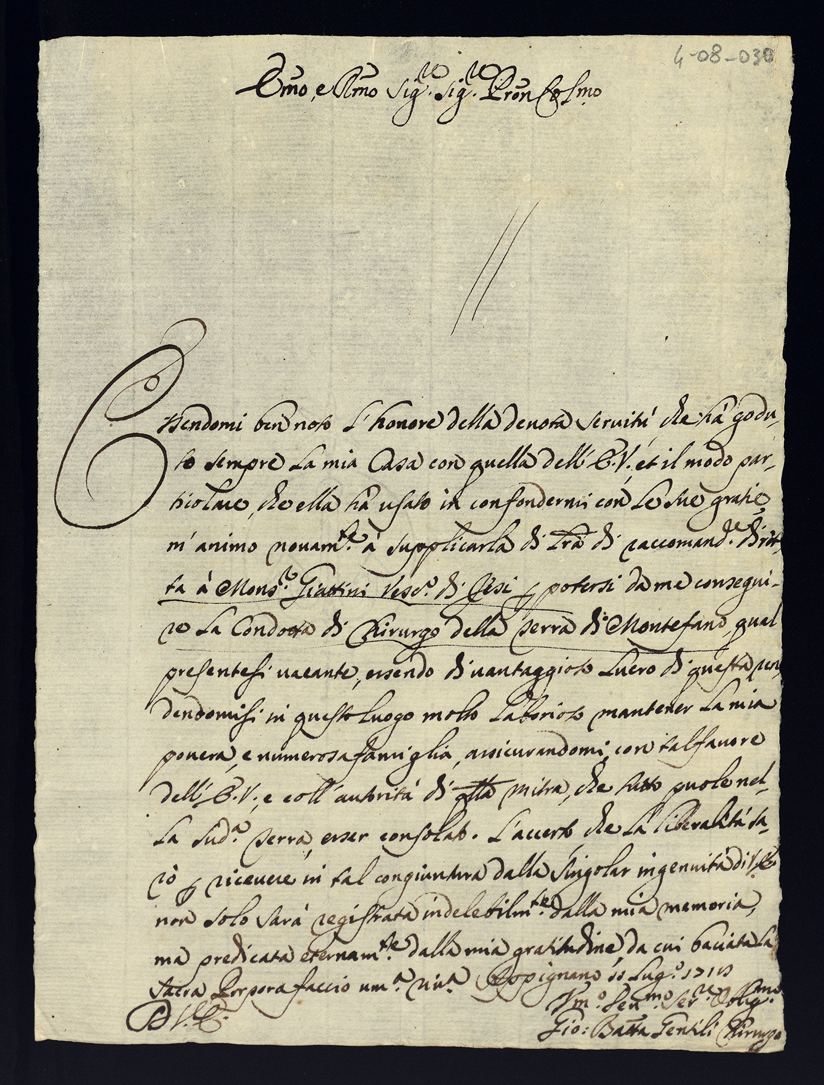 4-08-030
Em̃o, e Rm̃o Sig.re Sig.re Pron̄ Col.mo
Essendomi ben noto l'honore della devota servitù che hà godu-
to sempre la mia Casa con quella dell'E.V. et il modo par-
ticolare, che ella hà usato in confondermi con le sue gratie,
m'animo novam.te à supplicarla di Lr̃a di raccomand.e diret-
ta à Mons.r Giattini Vesc.o di Jesi potersi da me consegui-
re la Condotta di Chirurgo della Serra di Montefano, qual
presentesi vacante, essendo di vantaggioso lucro di questa, ren-
dendomisi in questo luogo molto laborioso mantener la mia
povera, e numerosa famiglia, assicurandomi, con tal favore
dell'E.V., e coll'autorità di Mitra, che tutto puole nel-
la sud.a Serra, esser consolato. L'accerto che la liberalità sa-
rò ricevere in tal congiuntura dalla singolar ingenuità di V.E.
non solo sarà registrata indelebilm.te dalla mia memoria,
ma predicata eternam.te dalla mia gratitudine da cui baciata la
Sacra Porpora faccio um.a riv.a Appignano Lug.o
D V.E. Um.o Dev.mo Ser.re Oblig.mo
Gio: Batta Gentili Chirurgo